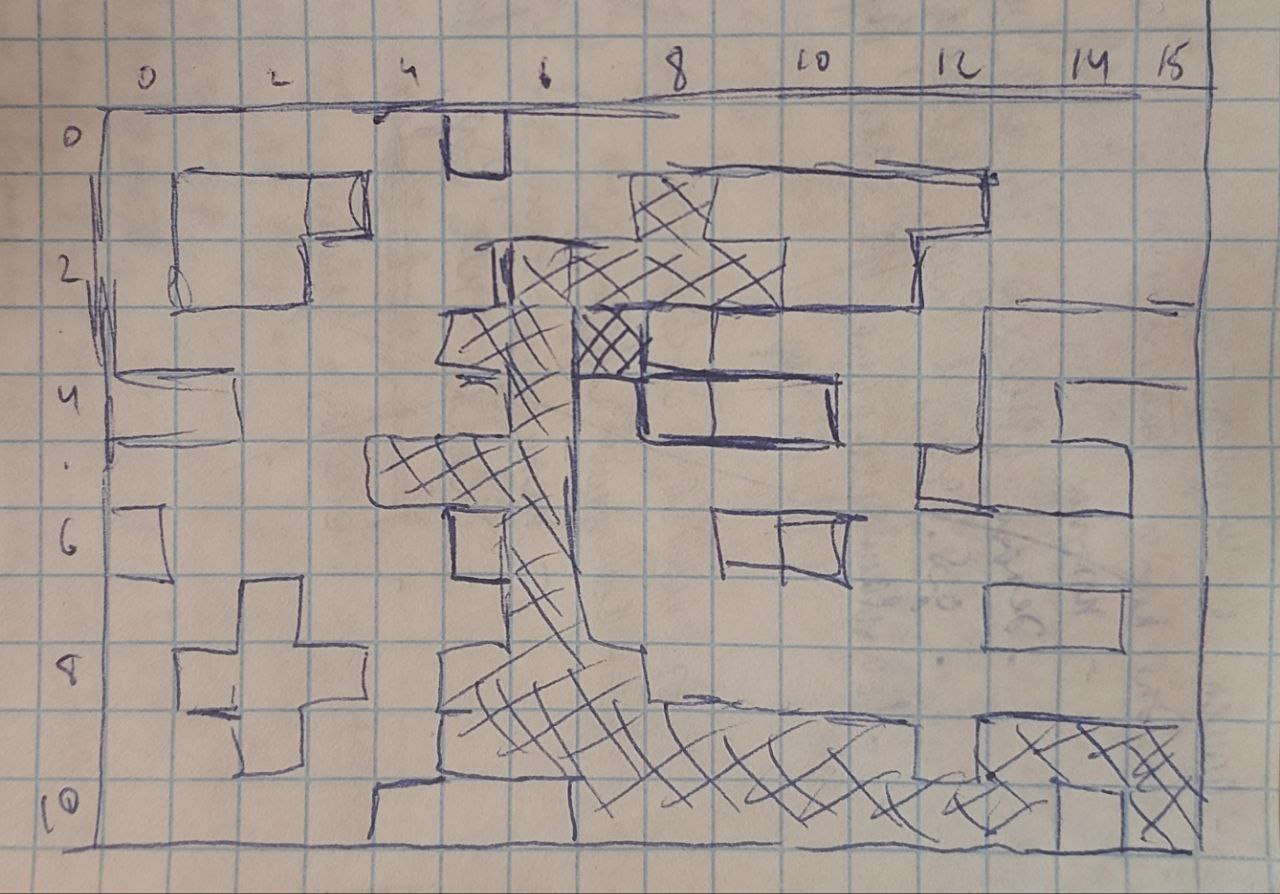 0 2 4 6 8 10 12 14 15
0
2
4
6
8
10